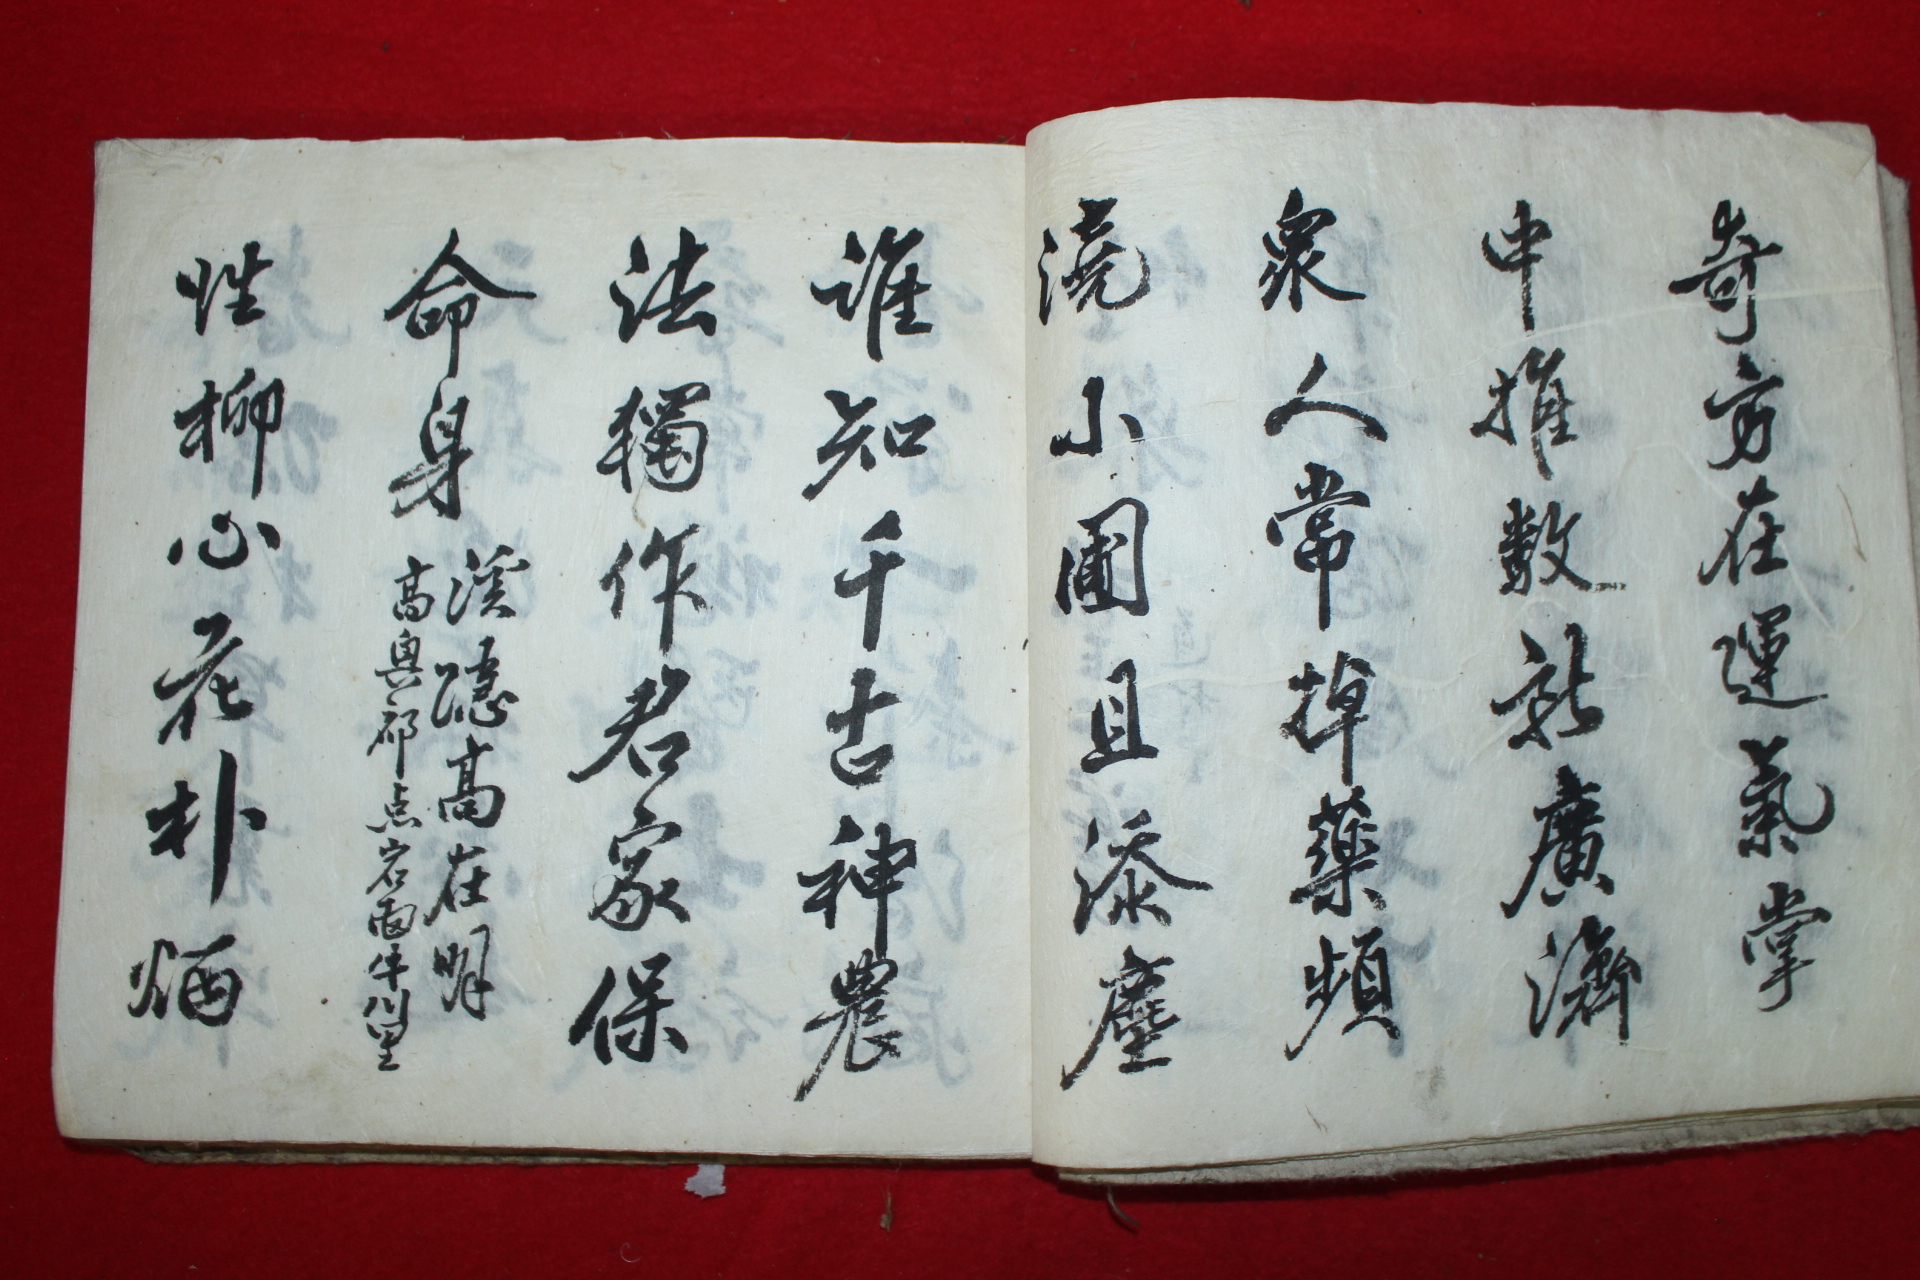 奇方在運氣掌
中推數新廣濟
衆人常掉藥頻
澆小圃且添塵
誰知千古神農
法獨作君家保
命身
溪隱高在明
高興郡点岩面牛川里
性柳心花朴